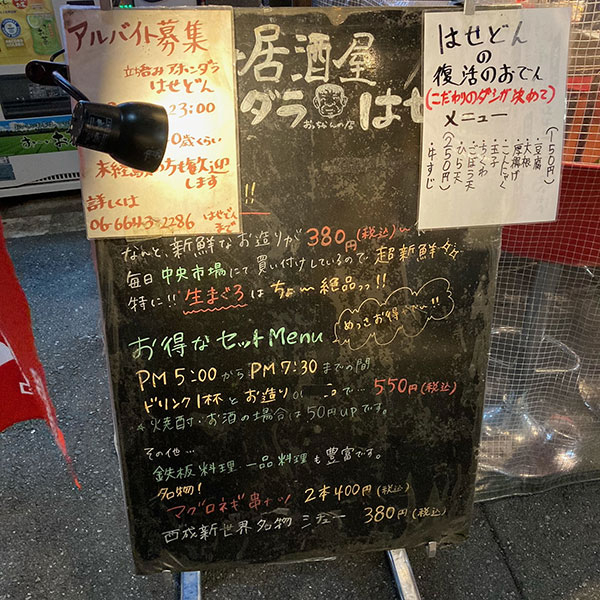 アルバイト募集
立ち呑み アホンダラ
はせどん
23:00
0歳くらい
未経験の方も歓迎
します
詳しくは
06-6643-2286 はせどん
まで
居酒屋
ダラ はせ
おっちゃんの店
はせどん
の
復活のおでん
(こだわりのダシが決めて)
メニュー
(150円)
・豆腐
・大根
・厚揚げ
・こんにゃく
・玉子
・ちくわ
・ごぼう天
・ひら天
(250円)
・牛すじ
!!
なんと、新鮮なお造りが 380円(税込)〜
毎日 中央市場にて買い付けしているので 超新鮮
特に!! 生まぐろはちょ〜絶品っっ!!
お得なセットMenu
めっさお得やで〜!!
PM 5:00から PM 7:30までの間
ドリンク1杯とお造り で… 550円(税込)
焼酎・お酒の場合は50円upです。
その他…
鉄板料理 一品料理も豊富です。
名物!
マグロネギ串カツ 2本400円(税込)
西成新世界名物 シチュー 380円(税込)